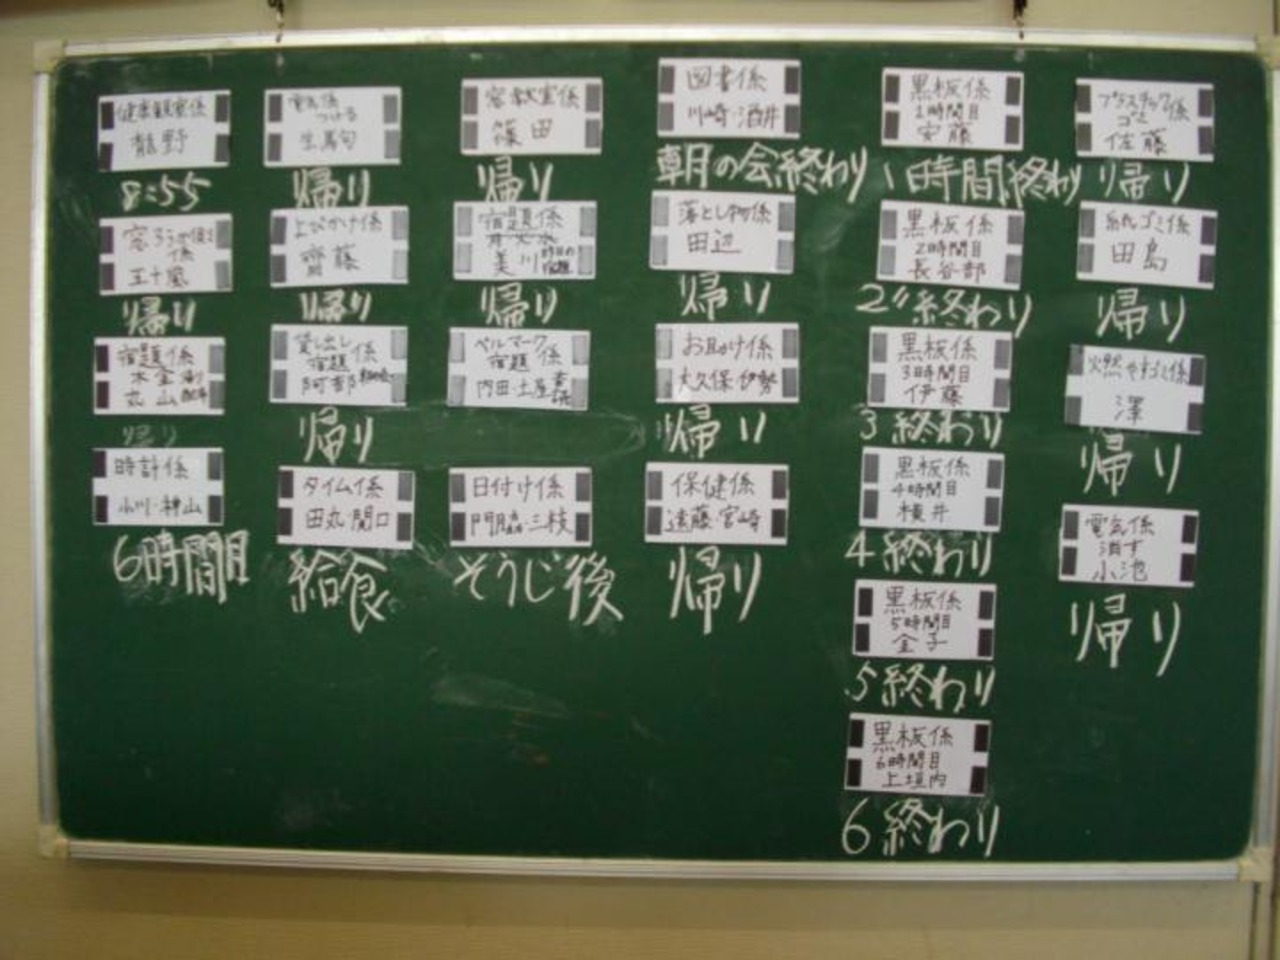 健康観察係
8:55
窓ろうか側
係
五十嵐
帰り
宿題係
木 金
丸山
帰り
時計係
小川・神山
6時間目
電気係
つける
生馬句
帰り
よびかけ係
齋藤
帰り
貸し出し
宿題 係
阿部
帰り
タイム係
田丸・関口
給食
窓教室係
篠田
帰り
宿題係
月火水
美川 昨日の
宿題
帰り
ベルマーク
宿題 係
内田・土屋
日付け係
門脇・三枝
そうじ後
図書係
川崎・酒井
朝の会終わり
落とし物係
田辺
帰り
お出かけ係
大久保・伊勢
帰り
保健係
遠藤・宮崎
帰り
黒板係
1時間目
安藤
1時間終わり
黒板係
2時間目
長谷部
2〃終わり
黒板係
3時間目
伊藤
3終わり
黒板係
4時間目
横井
4終わり
黒板係
5時間目
金子
5終わり
黒板係
6時間目
上垣内
6終わり
プラスチック係
ゴミ
佐藤
帰り
紙ゴミ係
田島
帰り
火燃やすゴミ係
澤
帰り
電気係
消す
小池
帰り